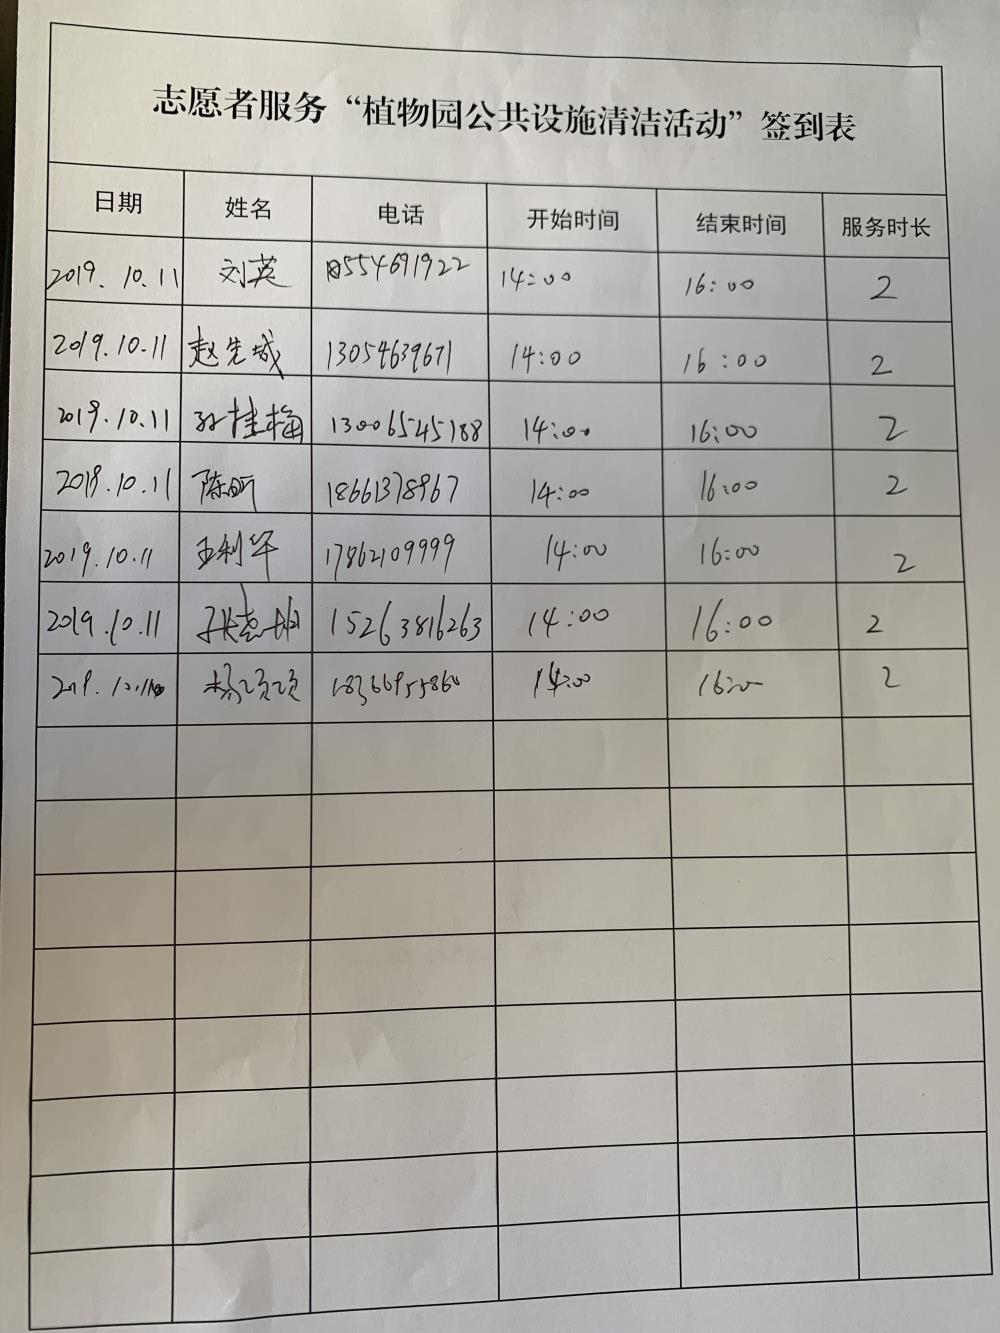 志愿者服务“植物园公共设施清洁活动”签到表
日期 姓名 电话 开始时间 结束时间 服务时长
2019.10.11 刘英 18554691922 14:00 16:00 2
2019.10.11 赵先城 13054639671 14:00 16:00 2
2019.10.11 孙桂梅 13006545188 14:00 16:00 2
2019.10.11 陈昕 18661378967 14:00 16:00 2
2019.10.11 王利华 17862109999 14:00 16:00 2
2019.10.11 15263816263 14:00 16:00 2
2019. 杨 14:00 16:00 2